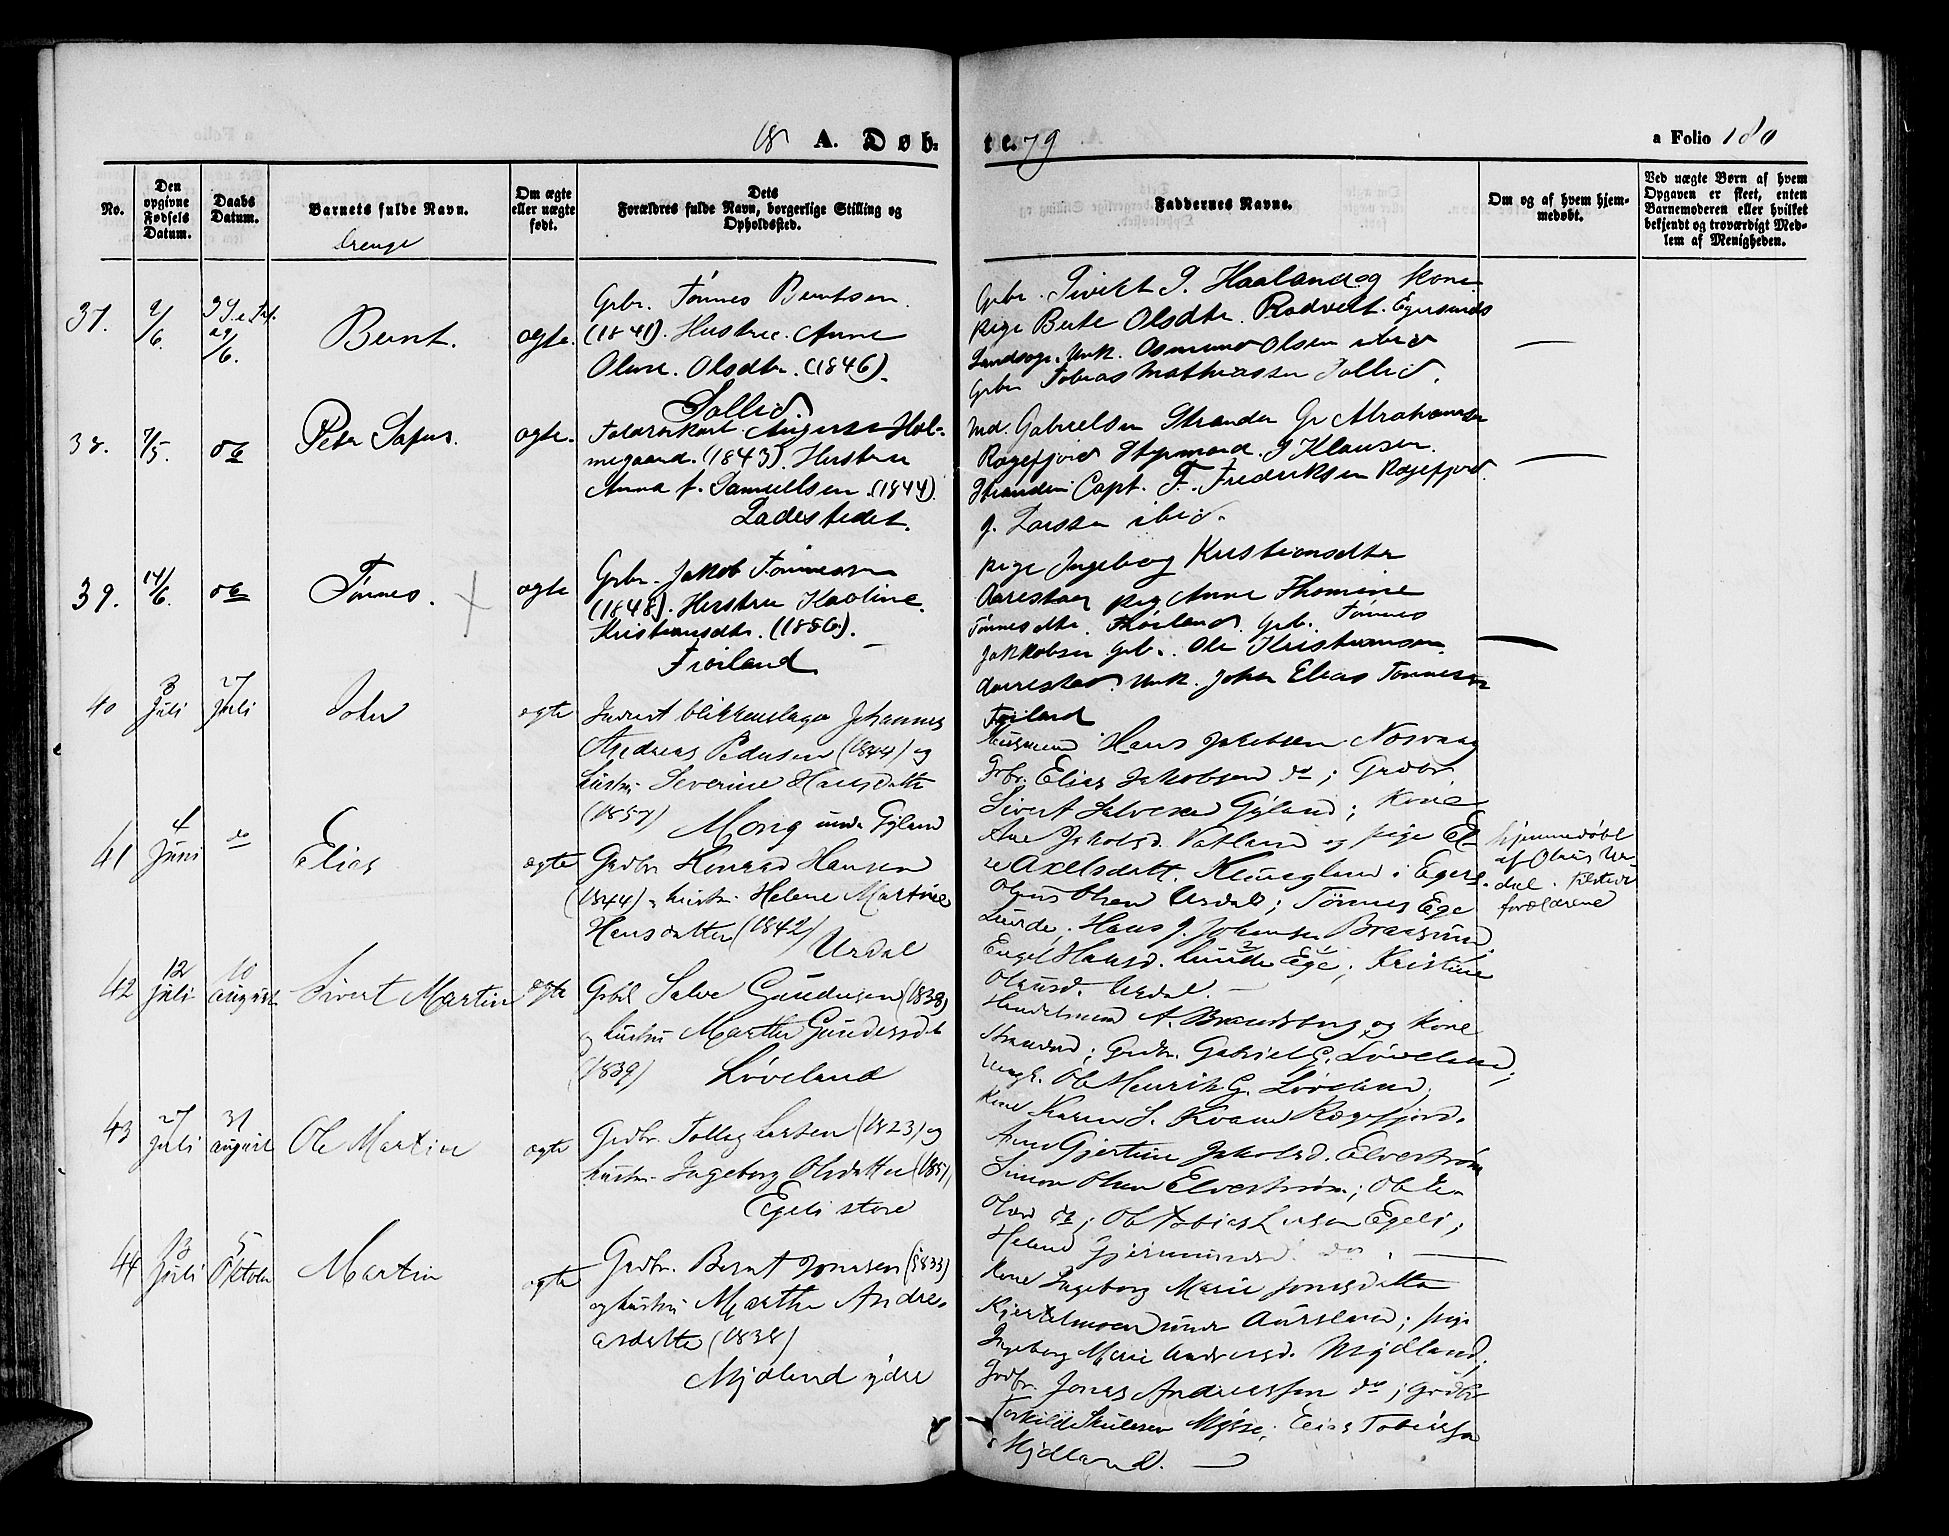 18 A. Døb-
te. 79
a Folio 180
No.
Den opgivne Fødsels Datum.
Daabs Datum.
Barnets fulde Navn.
Drenge
Om ægte eller uægte født.
Dets Forældres fulde Navn, borgerlige Stilling og Opholdssted.
Faddernes Navne.
Om og af hvem hjem-
medøbt.
Ved uægte Børn af hvem
Opgaven er skeet, enten
Barnemoderen eller hvilket
bekjendt og troværdigt Med-
lem af Menigheden.
37.
2/6.
29/6.
Bernt.
ægte.
Grbr. Tønnes Berntsen.
(1841). Hustru. Anne
Oline. Olsdtr. (1846).
Sollid.
Grbr. Sivert P. Haaland og Kone
pige Berte Olsdtr. Rodvelt. Egersunds
Landsogn. Unk. Osmund Olsen ibid
Grbr Tobias Mathiassen Sollid.
38.
7/5.
do
Peter
ægte.
Toldroerkarl. August Hol-
megaard. (1843). Hustru
Anna f. Samuelsen. (1844).
Ladestedet.
Gabrielsen Stranden Gr Abrahamsen
Rægefjord Styrmand. J Klausen.
Stranden Capt. F. Frederiksen Rægefjord.
J. Larsen ibid.
39.
14/6.
do
Tønnes.
ægte
Grbr. Jakob Tønnesen
(1848). Hustru Karoline.
Kristiansdtr. (1856).
Frøiland
pige Ingeborg Kristiansdtr
Aarestad pig Anne Thomine
Tønnesdtr. Frøiland. Grb. Tønnes
Jakkobsen Grb. Ole Kristiansen
Aarestad. Unk. Johan Elias Tønnesen
Frøiland
40
3 Juli
27 Juli
John
ægte
Inderst blikkenslager Johannes
Andreas Pedersen (1844) og
hustru Severine Hansdatter
(1857) Mong under Gyland
Husmand Hans Jakobsen Nosvaag
Grbr. Elias Jakobsen do; Grdbr.
Sivert Salvesen Gyland; Kone
Ane Jakobsd. Vatland og pige El-
se Axelsdatt. Klungland i Egers.
41
4 Juni
do
Elias
ægte
Grdbr Konrad Hansen
(1844) & hustru Helene Martine
Hansdatter (1842) Urdal
Olaus Olsen Urdal; Tønnes Ege
Lunde, Hans J. Johnsen Braasund
Engel Hansd. Lunde Ege; Kristine
Olausd. Urdal. —
hjemmedøbt
af Olaus Ur-
dal.
forældrene
42
12 Juli
10 august
Sivert Martin
ægte
Grbr Salve Gundersen (1838)
& hustru Marthe Gundersdt
(1839) Løveland
Handelsmand A. Brandsberg og Kone
Stranden; Grdbr. Gabriel G. Løveland;
Ungk. Ole Henrik G. Løveland;
Kone Karen S. Kvame Rægefjord.
43
27 Juli
31 august
Ole Martin
ægte
Grdbr. Tollag Larsen (1823) og
hustru Ingeborg Olsdatter
Egeli store
Ane Gjertine Jakobsd. Elvestrøm
Simon Olsen Elvestrøm; Ole
do; Ole Tobias Larsen Egeli;
Helene Gjermundsd. do. —
44
13 Juli
5 Oktober
Martin
ægte
Grdbr. Bernt Jonasen (1833)
og hustru Marthe Andre-
asdatter (1838)
Mydland ydre
Kone Ingeborg Marie Jonasdatter
Kjerkelmoen under Aarsland; pige
Ingeborg Marie Andreasd. Mydland;
Grdbr. Jonas Andreassen do; Grdbr
Torkild Skulesen Mysse; Elias Tobiassen
Mydland. —